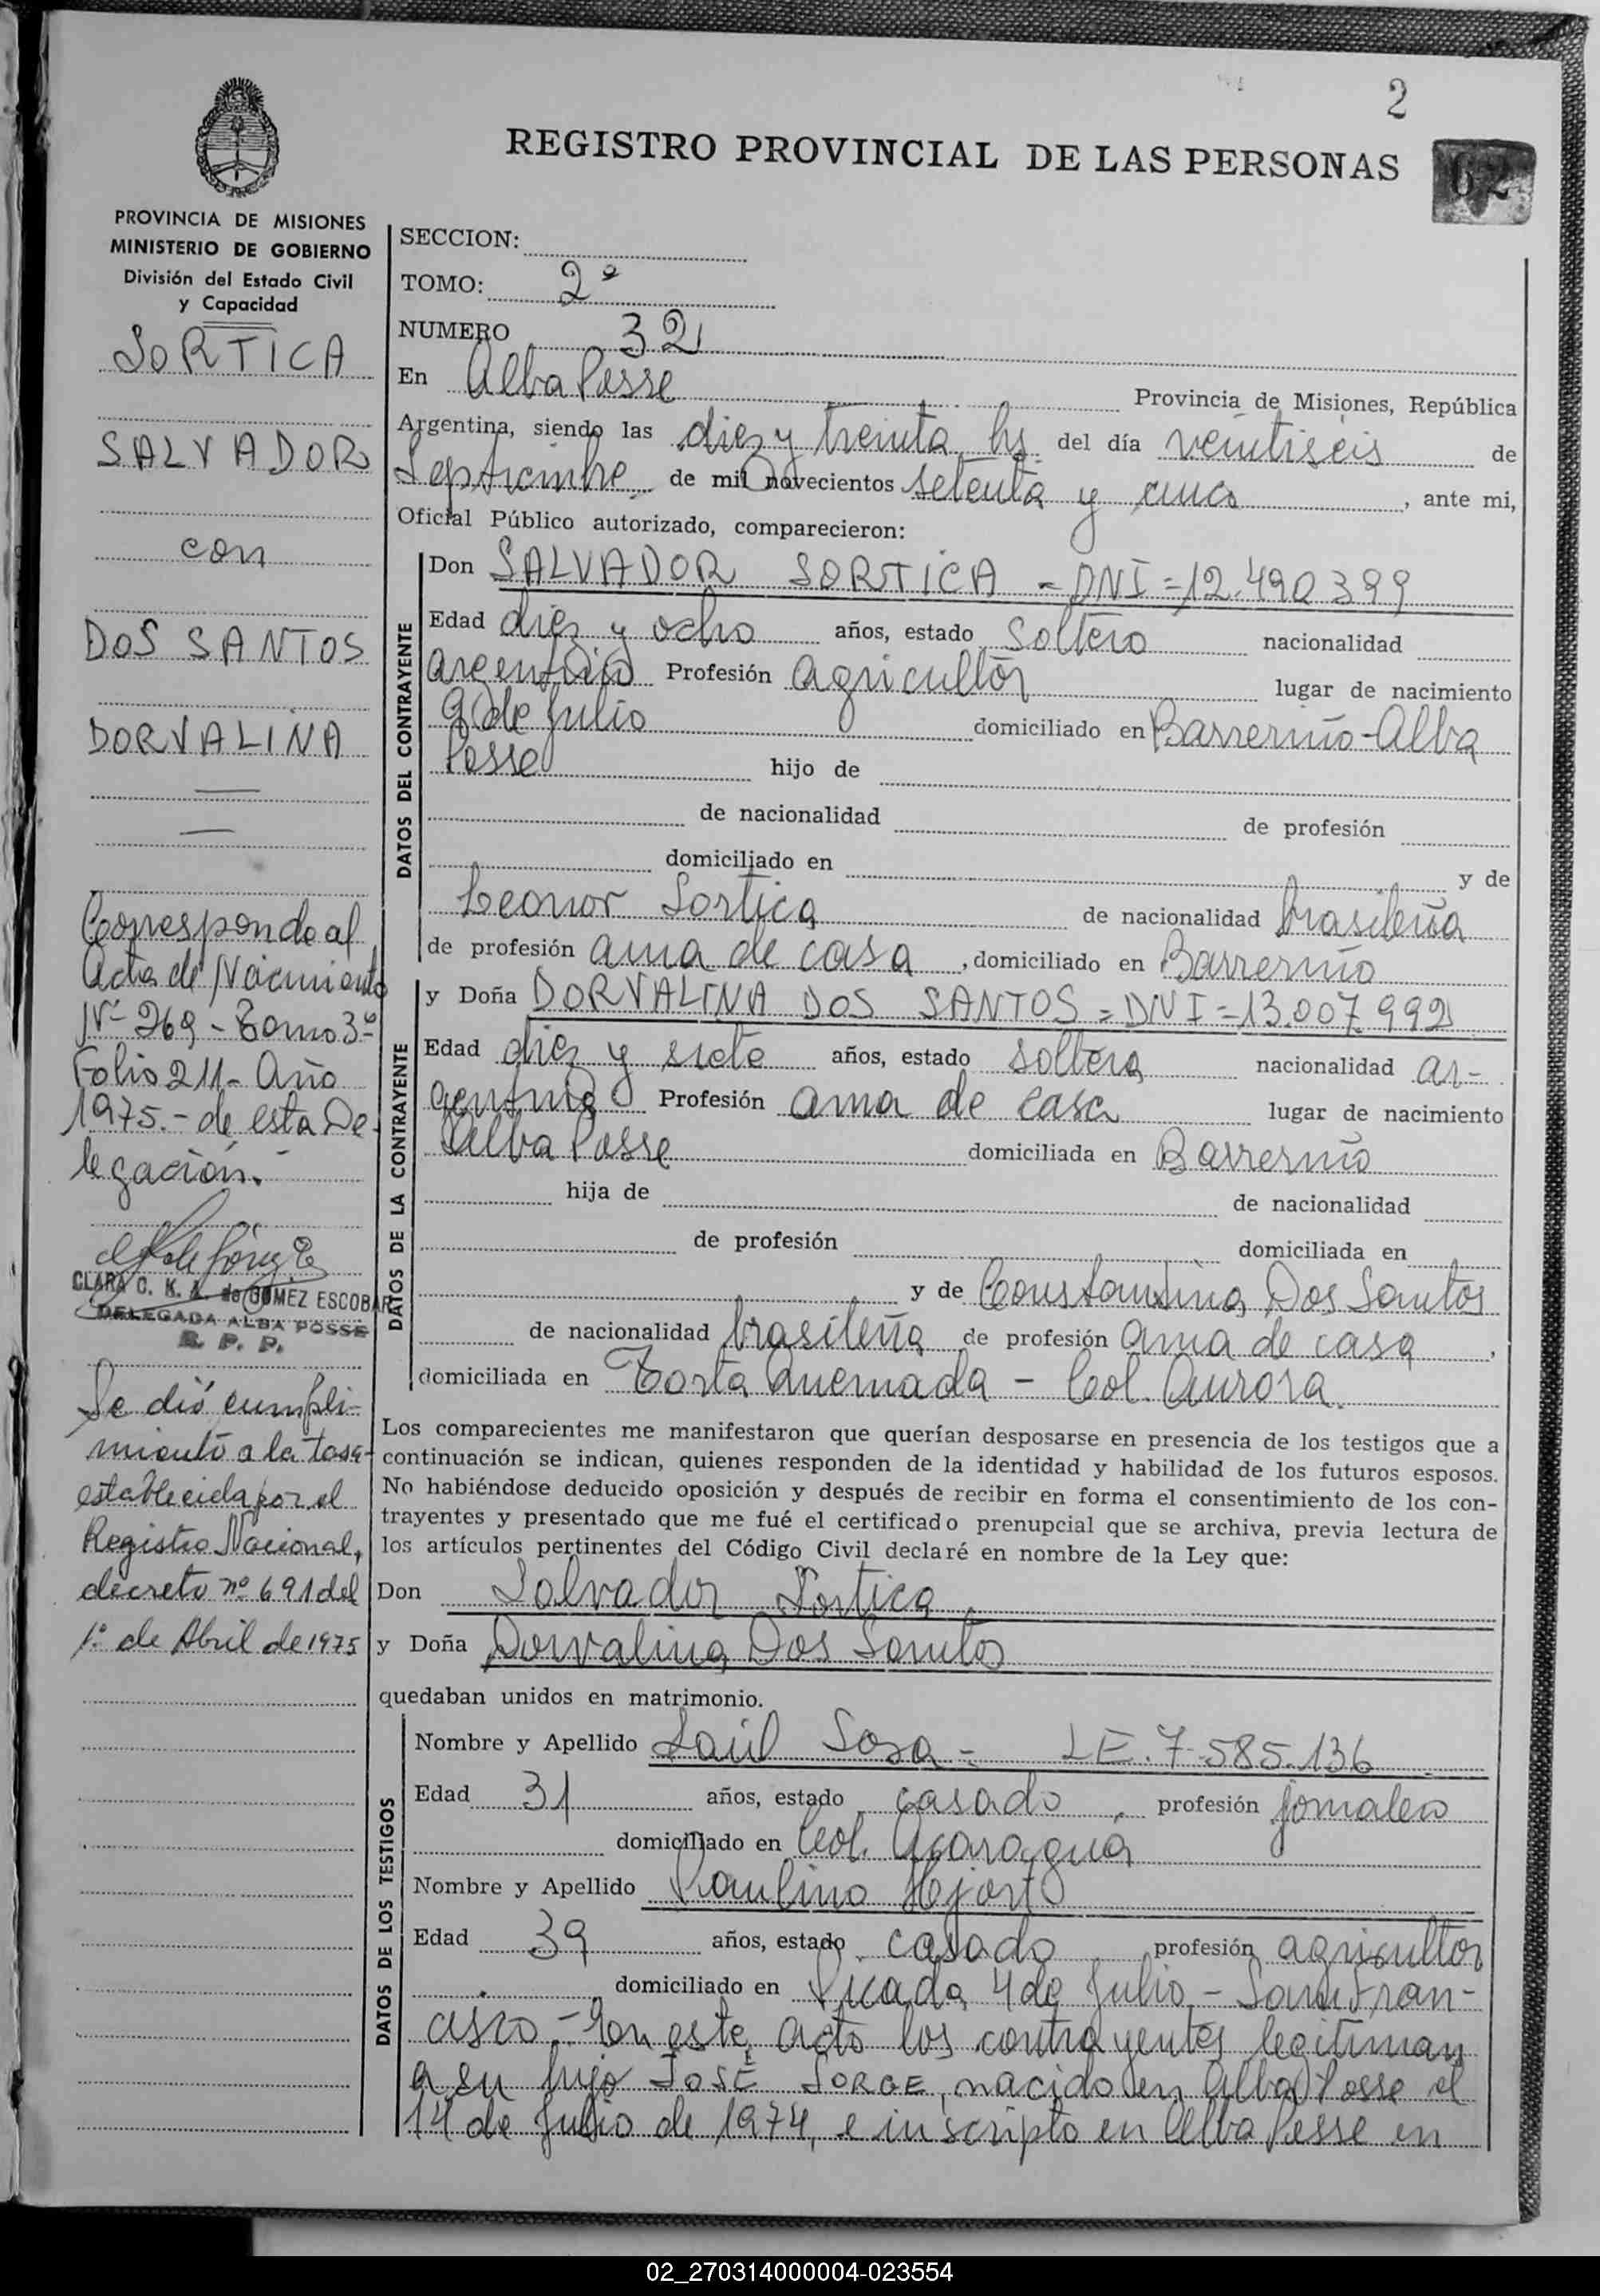 2
REGISTRO PROVINCIAL DE LAS PERSONAS
62
PROVINCIA DE MISIONES
MINISTERIO DE GOBIERNO
División del Estado Civil
y Capacidad
SORTICA
SALVADOR
con
DOS SANTOS
DORVALINA
Corresponde al
Acta de Nacimiento
Nº 269 - Tomo 3º
Folio 211 - Año
1975.- de esta De-
legación.-
CLARA C. K. A. de GOMEZ ESCOBAR
DELEGADA ALBA POSSE
R. P. P.
Se dió cumpli-
miento a la tasa
establecida por el
Registro Nacional,
decreto nº 691 del
1º de Abril de 1975
SECCION:
TOMO: 2º
NUMERO 32
En Alba Posse Provincia de Misiones, República
Argentina, siendo las diez y treinta hs del día veintiseis de
Septiembre de mil novecientos setenta y cinco, ante mi,
Oficial Público autorizado, comparecieron:
DATOS DEL CONTRAYENTE
Don SALVADOR SORTICA = DNI = 12.490.399
Edad diez y ocho años, estado soltero nacionalidad
argentino Profesión agricultor lugar de nacimiento
9 de Julio domiciliado en Barrerino - Alba
Posse hijo de
de nacionalidad de profesión
domiciliado en y de
Leonor Sortica de nacionalidad brasileña
de profesión ama de casa, domiciliado en Barrerino
DATOS DE LA CONTRAYENTE
y Doña DORVALINA DOS SANTOS = DNI = 13.007.992
Edad diez y siete años, estado soltera nacionalidad ar-
gentina Profesión ama de casa lugar de nacimiento
Alba Posse domiciliada en Barrerino
hija de de nacionalidad
de profesión domiciliada en
y de Constantina Dos Santos
de nacionalidad brasileña de profesión ama de casa,
domiciliada en Torta Quemada - Col. Aurora
Los comparecientes me manifestaron que querían desposarse en presencia de los testigos que a
continuación se indican, quienes responden de la identidad y habilidad de los futuros esposos.
No habiéndose deducido oposición y después de recibir en forma el consentimiento de los con-
trayentes y presentado que me fué el certificado prenupcial que se archiva, previa lectura de
los artículos pertinentes del Código Civil declaré en nombre de la Ley que:
Don Salvador Sortica
y Doña Dorvalina Dos Santos
quedaban unidos en matrimonio.
DATOS DE LOS TESTIGOS
Nombre y Apellido Saúl Sosa = LE. 7.585.136
Edad 31 años, estado casado, profesión jornalero
domiciliado en Col. Acaraguá
Nombre y Apellido Paulino Hejort
Edad 39 años, estado casado profesión agricultor
domiciliado en Picada 4 de Julio - San Fran-
cisco.- En este acto los contrayentes legitiman
a su hijo JOSÉ JORGE, nacido en Alba Posse el
14 de Julio de 1974, e inscripto en Alba Posse en
02_270314000004-023554